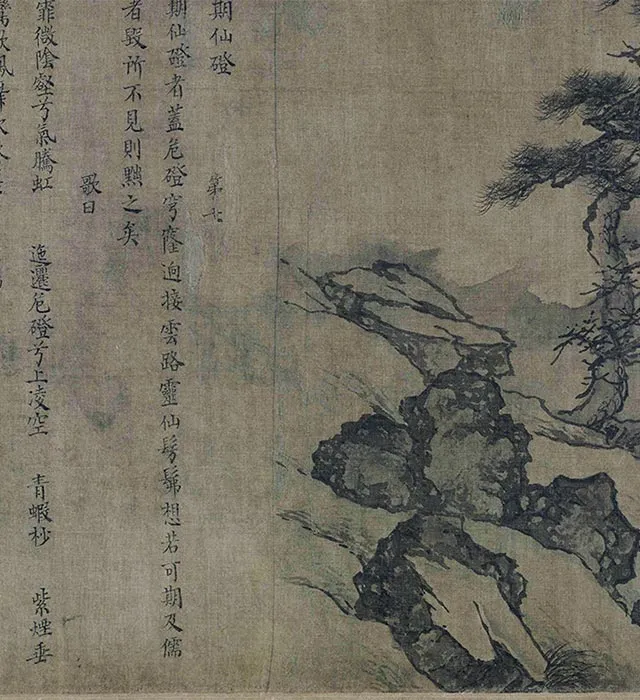 期仙磴 第七
期仙磴者蓋危磴穹隆逈接雲路靈仙髣髴想若可期及儒
者毀所不見則黜之矣
歌曰
霏微陰壑兮氣騰虹 迤邐危磴兮上凌空 青蝦杪 紫煙垂